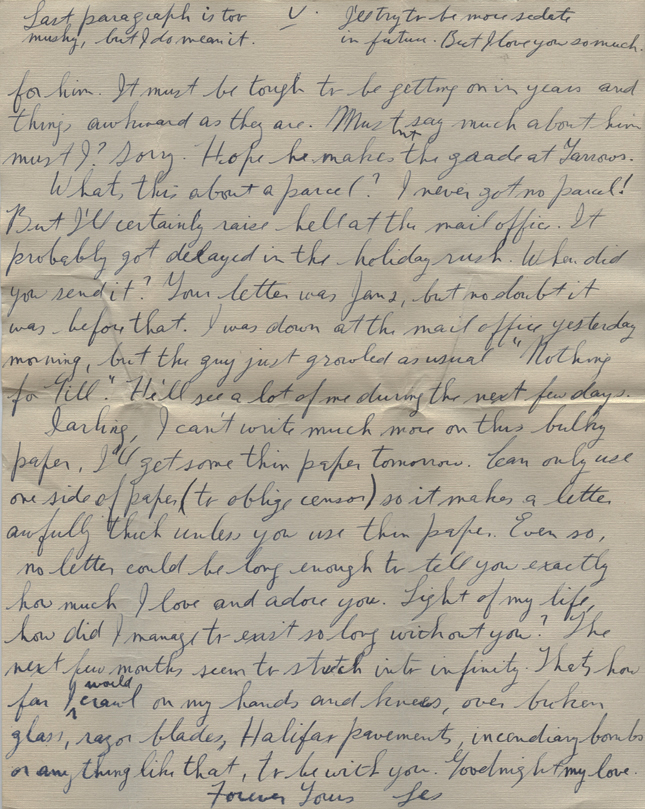 Last paragraph is too
mushy, but I do mean it.
V.
I'll try to be more sedate
in future. But I love you so much.
for him. It must be tough to be getting on in years and
things awkward as they are. Mustnt say much about him
must I? Sorry. Hope he makes the gaade at Yarrows.
Whats this about a parcel? I never got no parcel!
But I'll certainly raise hell at the mail office. It
probably got delayed in the holiday rush. When did
you send it? Your letter was Jan 2, but no doubt it
was before that. I was down at the mail office yesterday
morning, but the guy just growled as usual "Nothing
for Till". He'll see a lot of me during the next few days.
Darling, I can't write much more on this bulky
paper, I'll get some thin paper tomorrow. Can only use
one side of paper (to oblige censor) so it makes a letter
awfully thick unless you use thin paper. Even so,
no letter could be long enough to tell you exactly
how much I love and adore you. Light of my life,
how did I manage to exist so long without you? The
next few months seem to stretch into infinity. Thats how
far I would crawl on my hands and knees, over broken
glass, razor blades, Halifax pavements, incendiary bombs
or anything like that, to be with you. Goodnight my love.
Forever Yours Les